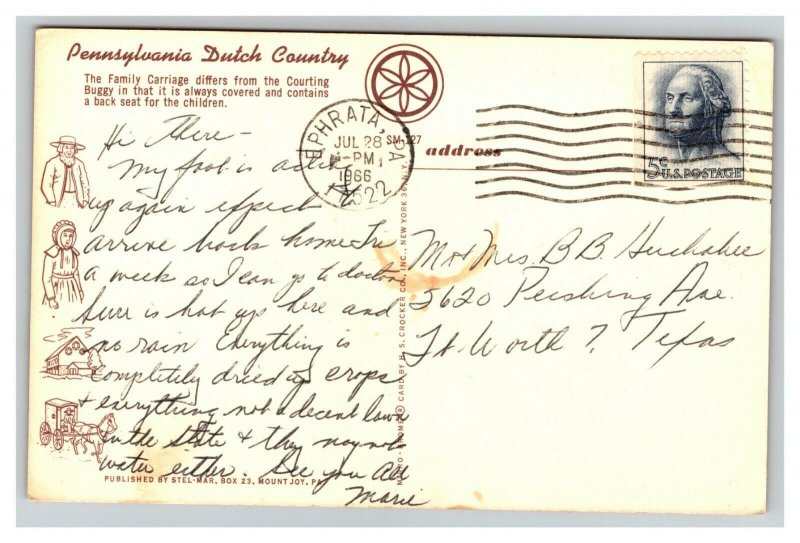 Pennsylvania Dutch Country
The Family Carriage differs from the Courting
Buggy in that it is always covered and contains
a back seat for the children.
Hi There -
My foot is acting
up again expect
arrive back home Fri
a week so I can go to doctor
Sure is hot up here and
no rain Everything is
completely dried up crops
& everything not a decent lawn
in the state & they may not
water either. See you all
Marie
PUBLISHED BY STEL-MAR, BOX 23, MOUNT JOY, PA.
EPHRATA, PA
JUL 28
PM
1966
17522
SM-127
address
5c U.S. POSTAGE
CARD BY H. S. CROCKER CO., INC., NEW YORK 36, N.Y.
Mr & Mrs. B. B. Huckabee
3620 Pershing Ave.
Ft. Worth 7, Texas